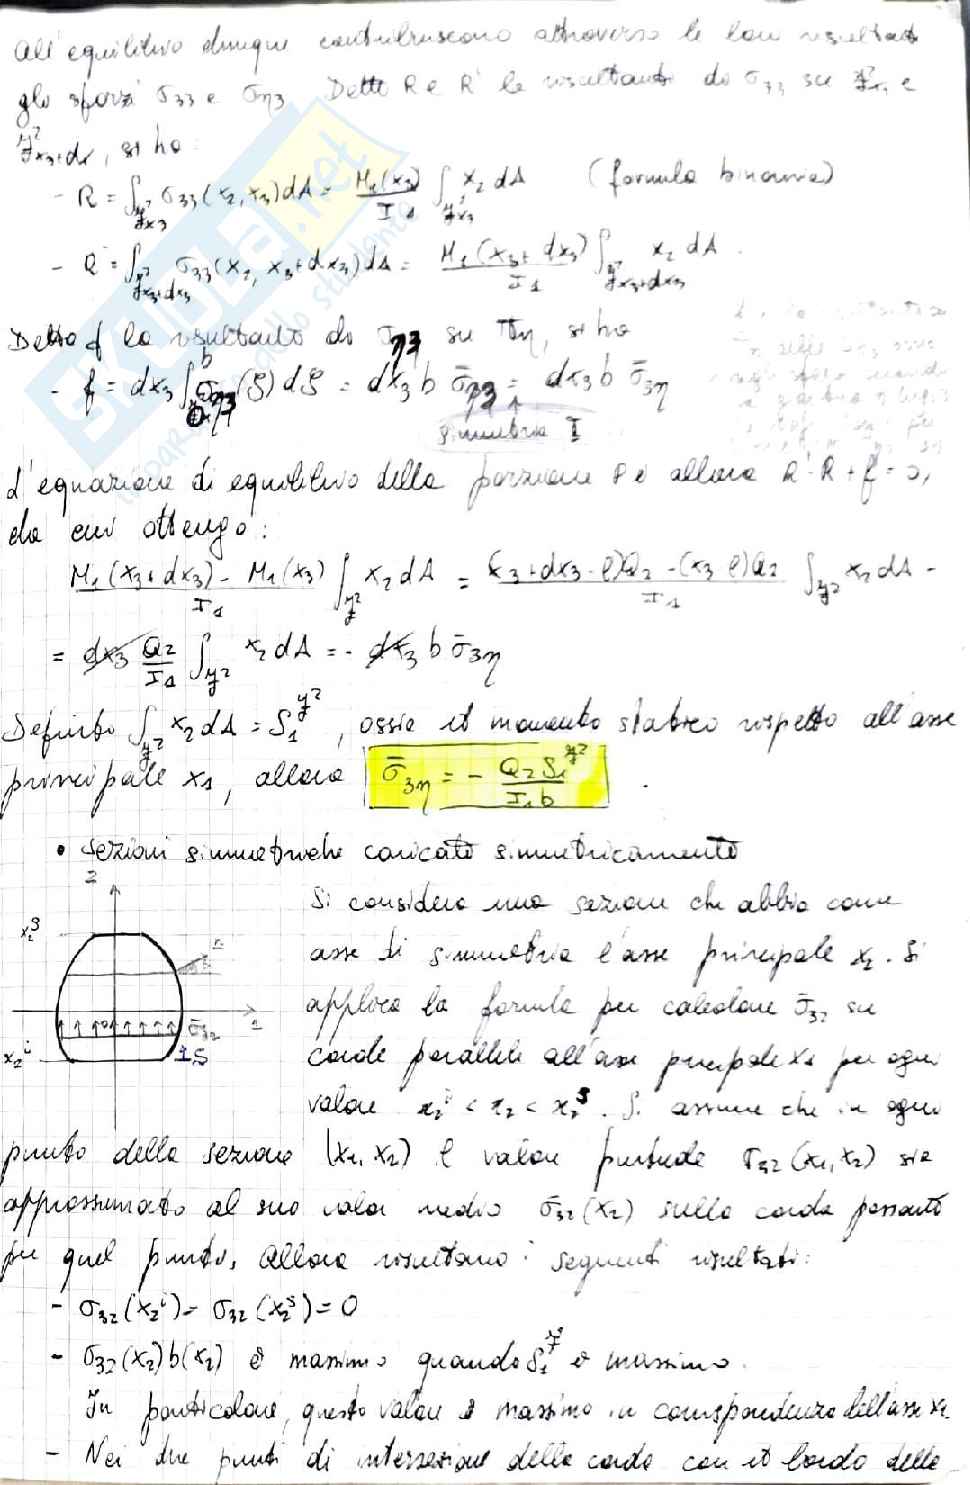 All'equilibrio dunque contribuiscono attraverso le loro risultanti
gli sforzi σ33 e ση3. Detto R e R' le risultanti di σ33 su e
si ha:
- R = ∫ σ33(x2, x3)dA = M1(x3)/I1 ∫ x2 dA (formula binomia)
- R' = ∫ σ33(x2, x3+dx3)dA = M1(x3+dx3)/I1 ∫ x2 dA.
Detto f la risultante di ση3 su πη, si ha
- f = dx3 ∫ ση3(ζ)dζ = dx3 b σ̄η3 = dx3 b σ̄3η
simmetria I
L'equazione di equilibrio della porzione P è allora R'-R+f=0,
da cui ottengo:
M1(x3+dx3) - M1(x3)/I1 ∫ x2dA = (x3+dx3-l)Q2-(x3-l)Q2/I1 ∫ x2dA -
= dx3 Q2/I1 ∫ x2dA = - dx3 b σ̄3η
Definito ∫ x2dA = S1, ossia il momento statico rispetto all'asse
principale x1, allora σ̄3η = - Q2S1/I1b.
• sezioni simmetriche caricate simmetricamente
2
Si considera una sezione che abbia come
x2s
asse di simmetria l'asse principale x2. Si
applica la formula per calcolare σ̄32 su
1
σ̄32
corde parallele all'asse principale x1 per ogni
x2i
valore x2i < x2 < x2s. Si assume che in ogni
punto della sezione (x1, x2) il valore puntuale σ32(x1,x2) sia
approssimato al suo valor medio σ̄32(x2) sulla corda passante
per quel punto. Allora risultano i seguenti risultati:
- σ32(x2i) = σ32(x2s) = 0
- σ32(x2)b(x2) è massimo quando S1 è massimo.
In particolare, questo valore è massimo in corrispondenza dell'asse x1
- Nei due punti di intersezione della corda con il bordo della